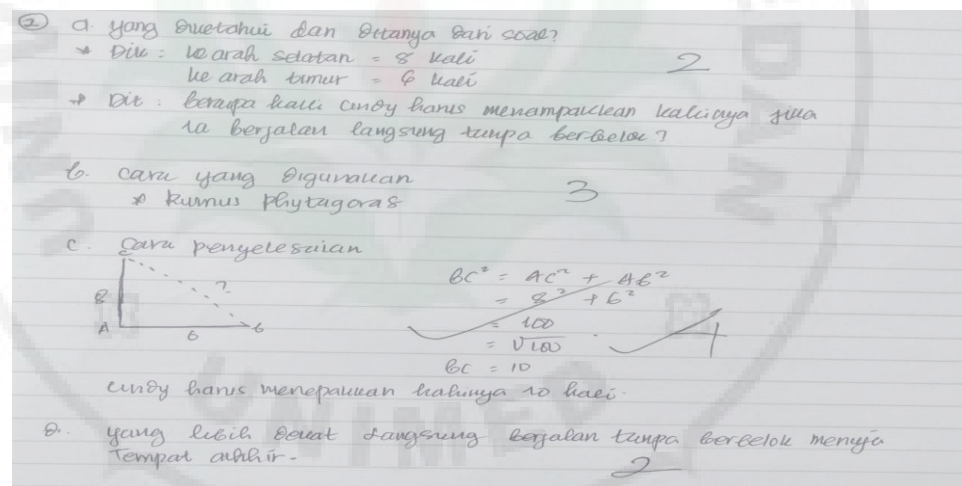 ② a. yang Diketahui dan Ditanya Dari soal?
* Dik : ke arah selatan = 8 kali
ke arah timur = 6 kali
2
* Dit : berapa kali cindy harus menampakkan kakinya jika
ia berjalan langsung tanpa berbelok?
b. cara yang Digunakan
* Rumus Phytagoras
3
c. Cara penyelesaian
8
?
A
6
b
BC² = AC² + AB²
= 8² + 6²
= 100
= √100
BC = 10
4
cindy harus menepakkan kakinya 10 kali.
D. yang lebih Dekat Langsung berjalan tanpa berbelok menuju
Tempat akhir.
2
UNIMED